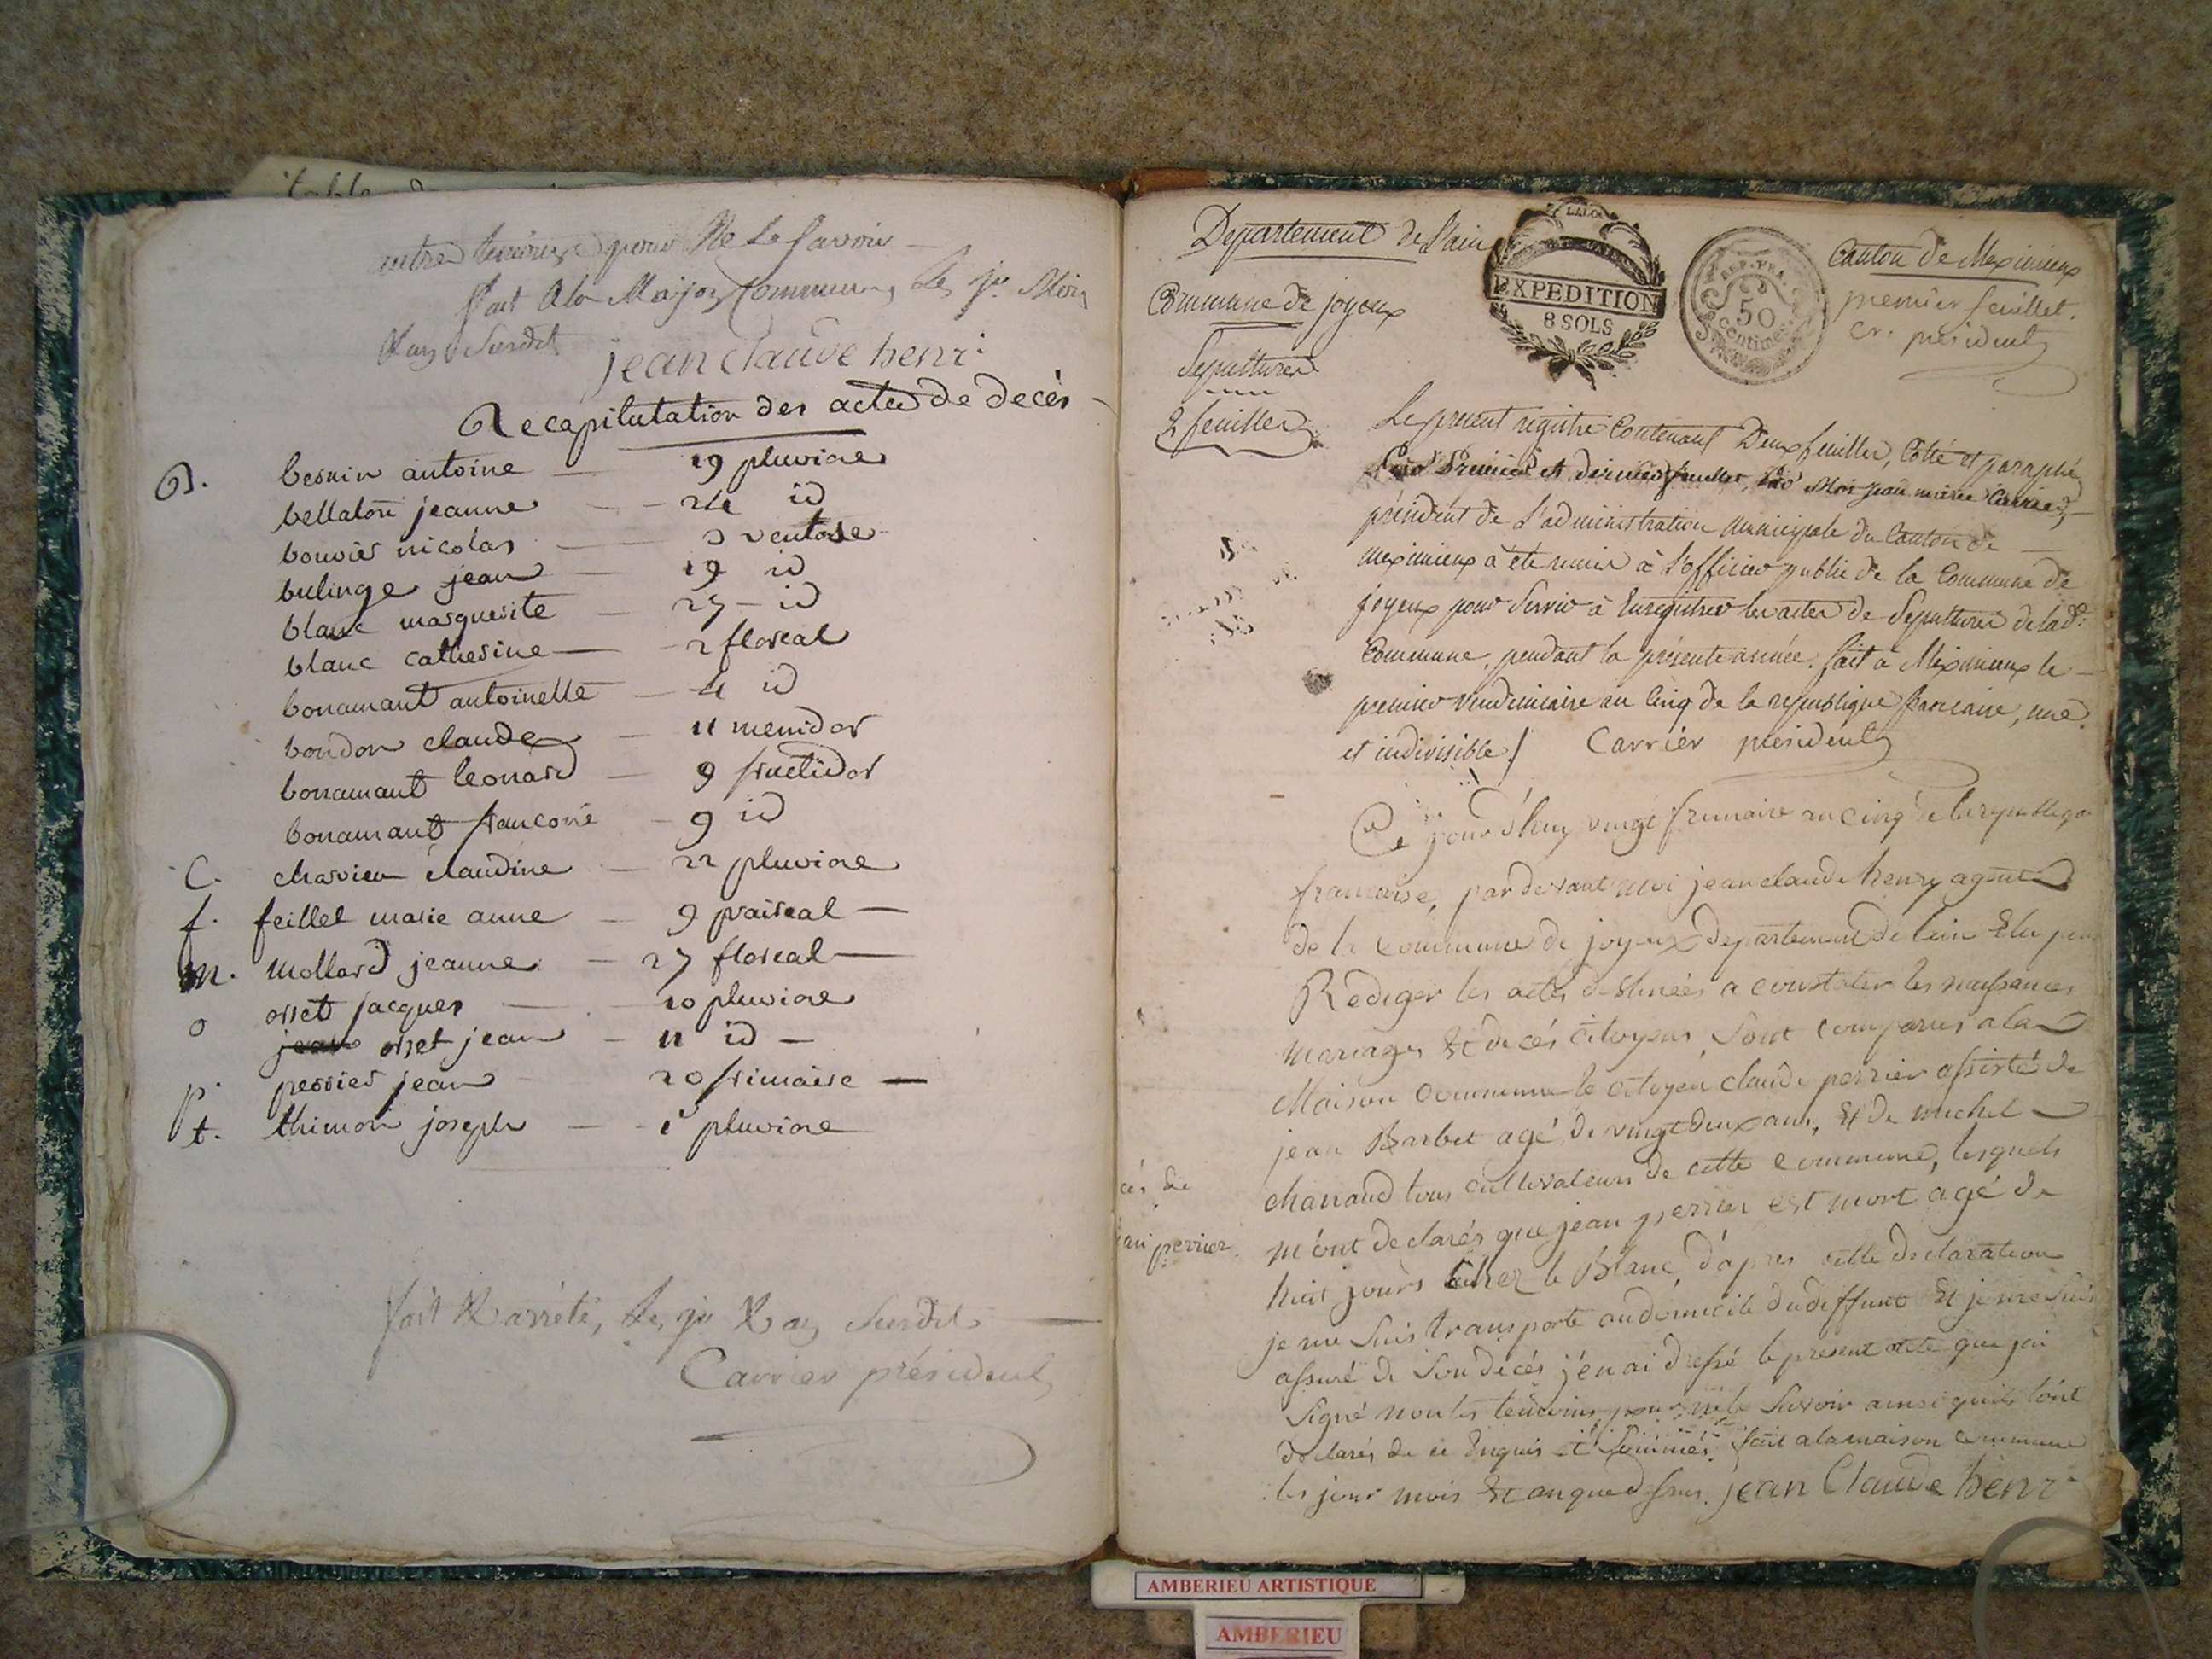 table
autres temoins pour Ne Le Savoir
fait A la Maison Commune, Les jr. Mois
& an Susdit jean claude henri
Recapitulation des actes de decès
B. besnin antoine — 19 pluviose
bellaton jeanne — 24 id
bouvier nicolas — 3 ventose
bulinge jean — 19 id
blanc marguerite — 27 id
blanc catherine — 2 floreal
bonamant antoinette — 4 id
boudon claude — 11 mesidor
bonamant leonard — 9 fructidor
bonamant francoise — 9 id
C. charvieu claudine — 22 pluviose
f. feillet marie anne — 9 praireal —
m. mollard jeanne — 27 floreal —
o orset jacques — 20 pluviose
jean orset jean — 11 id —
p. perrier jean — 20 frimaire —
t. thimon joseph — 1 pluviose
fait & arrété, Les jr & an Susdit
Carrier président
Departement de l'ain
Commune de joyeux
Sepultures
2 feuillets
LALOI
EXPEDITION
8 SOLS
REP. FRA.
50
centimes
Canton de Meximieux
premier feuillet.
Cr. président
Le present registre Contenant Deux feuillets, Cotté et paraphé
Par Premier et dernier feuillet, Par Moi jean marie Carrier,
président de L'administration municipale du Canton de
meximieux à été remis à L'officier public de la Commune de
joyeux pour Servir à Enregistrer les actes de Sepultures de lad.
Commune, pendant la présente année. fait à Meximieux le
premier vendemiaire an Cinq de la republique francaise, une
et indivisible / Carrier président
Ce jour d'huy vingt frimaire an cinq de la republique
francaise, par devant moi jean claude henry agent
de la commune de joyeux departement de lain Elu pour
Rediger les actes destinées a constater les naissances
mariages Et decés citoyens, Sont comparus a la
Maison Commune le citoyen claude perrier assisté de
jean Barbet agé de vingt deux ans, Et de michel
chanaud tous cultivateurs de cette commune, lesquels
m'ont declarés que jean perrier est mort agé de
huit jours chez le Blanc, d'apres cette declaration
cés de
jean perrier.
je me suis transporté au domicile du deffunt Et je me suis
assuré de Son decés j'en ai dressé le present acte que jai
signé non les temoins pour ne le savoir ainsi quils lont
declarés de ce Enquis et Sommés. fait a la maison commune
les jour mois Et an que dessus. jean Claude henri
AMBERIEU ARTISTIQUE
AMBERIEU